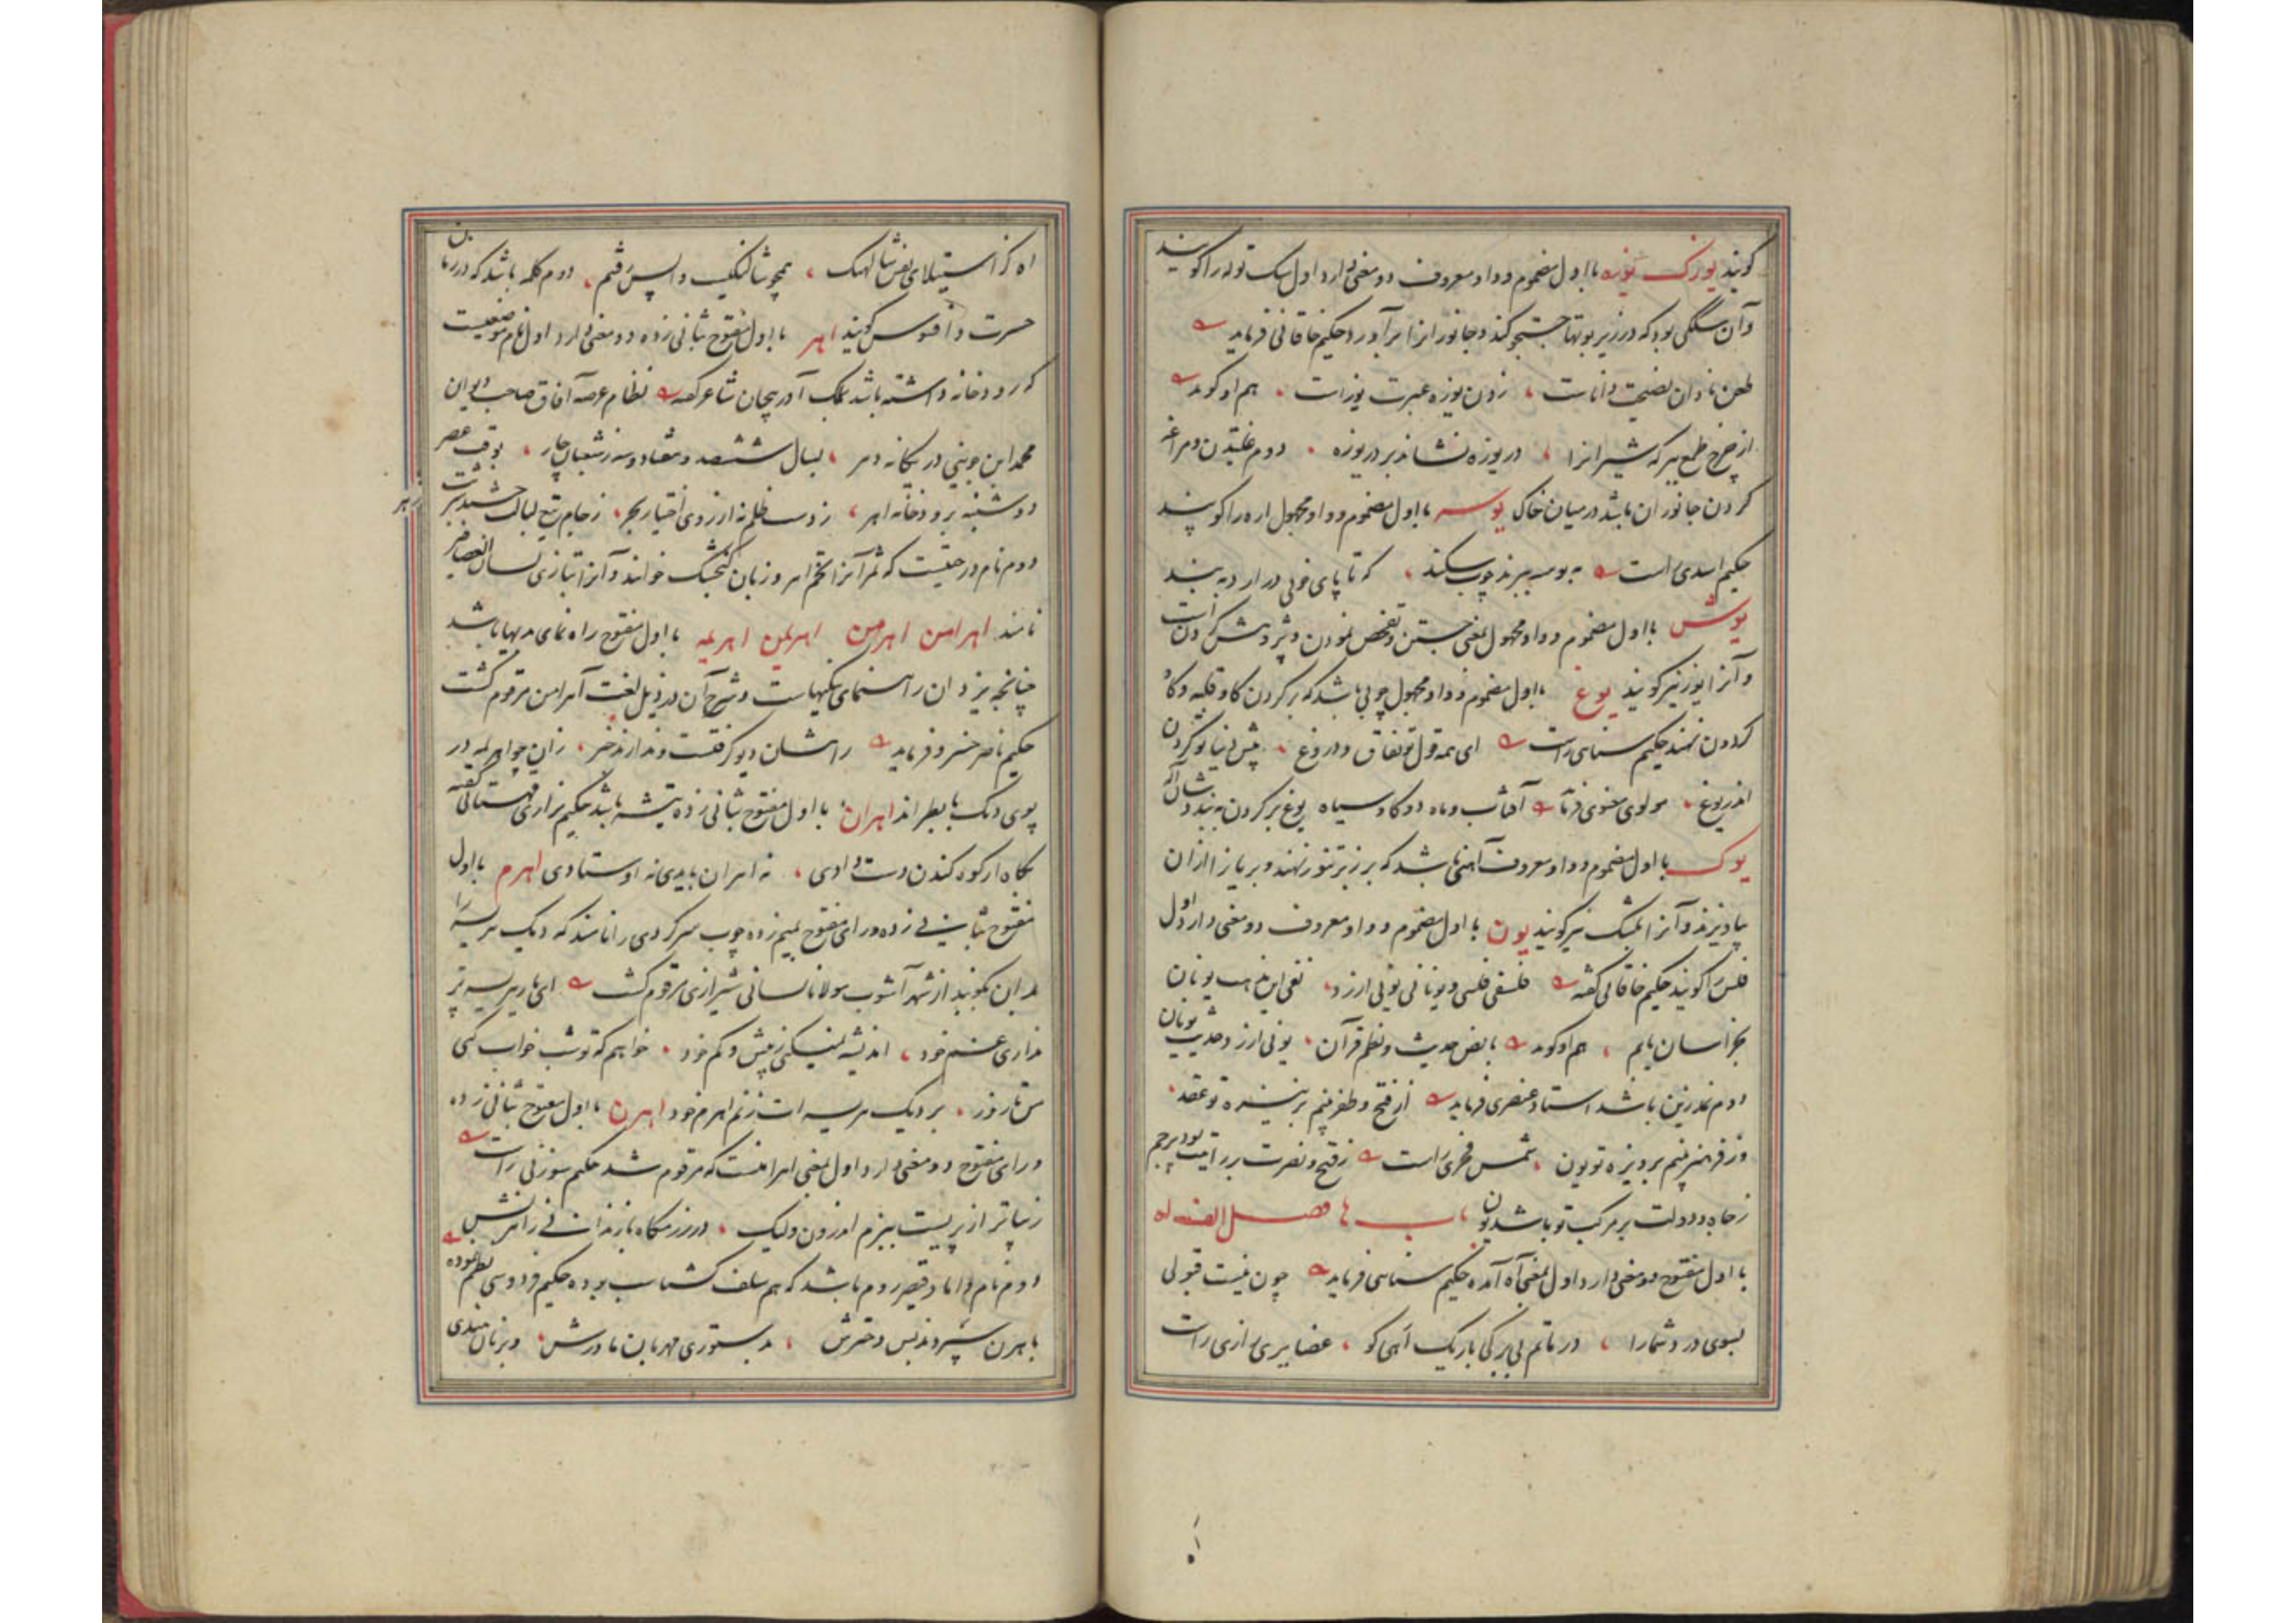 گویند یوزک یوزه با اول مضموم و واو معروف دو معنی دارد اول سک توله را گویند
و آن سگی بود که در زیر بوتها جستجو کند و جانور انرا برآورد حکیم خاقانی فرماید
طعن نادان نصیحت داناست زدن یوزه عبرت یوز است هم او گوید
از چرخ طمع ببر که شیرانرا دریوزه نشاند بر دریوزه دوم غلتیدن و مراغه
کردن جانوران باشد در میان خاک یوسه با اول مضموم و واو مجهول اره را گویند
حکیم اسدی راست به یوسه ببرند چوب سکند که تا پای خونی در ارد به بند
یوش با اول مضموم و واو مجهول بمعنی جستن و تفحص نمودن و پژوهش کردن است
و آنرا یوز نیز گویند یوغ با اول مضموم و واو مجهول چوبی باشد که بر کردن کاو قلبه و کاو
کردون نهند حکیم سنایی راست ای همه قول تو نفاق و دروغ پیش دنیا تو کردن
اندر یوغ مولوی معنوی فرماید آفتاب و ماه دو کاو سیاه یوغ بر کردن به بنددشان اله
یوک با اول مضموم و واو معروف آهنی باشد که بر زبر تنور نهند و بریان از ان
بیاویزند و آنرا بلسک نیز گویند یون با اول مضموم و واو معروف دو معنی دارد اول
فلس را گویند حکیم خاقانی گفته فلسفی فلسی و یونانی یونی ارزد نفی این مذهب یونان
بخراسان یابم هم او گوید با نص حدیث و نظم قرآن یونی ارزد حدیث یونان
دوم نمد زین باشد استاد عنصری فرماید از فتح و ظفر بینم بر نیزه تو عقد
وز فر و هنر بینم بر دیزه تو یون شمس فخری راست ز فتح و نصرت بر رایتت بود پرچم
ز جاه و دولت بر مرکب تو باشد یون باب ها فصل الف اه
با اول مفتوح دو معنی دارد اول بمعنی آه آمده حکیم سنایی فرماید چون نیست قبولی
بسوی درد شما را در ماتم بی برکی باریک اهی کو غضایری رازی راست
اه
اه کز استیلای نفس شالهنک همچو شالنکیب واپس رفتم دوم کلمه باشد که در زمان
حسرت و افسوس گویند اهر با اول مفتوح بثانی زده دو معنی دارد اول نام موضعیست
که رودخانه داشته باشد بملک آذربیجان شاعر گفته نظام عرصه آفاق صاحب دیوان
محمد ابن جوینی در یکانه دهر بسال ششصد و هشتاد و سه ز شعبان چار بوقت عصر
دوشنبه برودخانه اهر ز دست ظلم نه از روی اختیار بجبر ز جام تیغ لبالب چشید شربت
زهر
دوم نام درختیست که ثمر آنرا تخم اهر و زبان کنجشک خوانند و آنرا بتازی لسان العصافیر
نامند اهرامن اهرمن اهریمن اهریمه با اول مفتوح راه نمای بدیها باشد
چنانچه یزدان راهنمای نیکیهاست و شرح آن در ذیل لغت آهرامن مرقوم گشت
حکیم ناصر خسرو فرماید
پوی دنک با بطر اند اهران با اول مفتوح بثانی زده تیشه باشد حکیم نزاری قهستانی گفته
بکاه ار کوه کندن دست دادی نه اهران بایدی نه اوستادی اهرم با اول
مفتوح بثانی زده و رای مفتوح بمیم زده چوب سرکردی را نامند که دیک هریسه را
بدان بکوبند از شهر آشوب مولانا لسانی شیرازی مرقوم گشت
نداری غم خود اندیشه نمیکنی ز بیش و کم خود خواهم که تو شب خواب کنی
من تا روز بر دیک هریسه ات زنم اهرم خود اهرن با اول مفتوح بثانی زده
و رای مفتوح دو معنی دارد اول بمعنی اهرامنست که مرقوم شد حکیم سوزنی راست
دوم نام داماد قیصر روم باشد که هم سلف کشتاسب بوده حکیم فردوسی نظم نموده
باهرن سپردند پس دخترش بدستوری مهربان مادرش و بزبان هندی